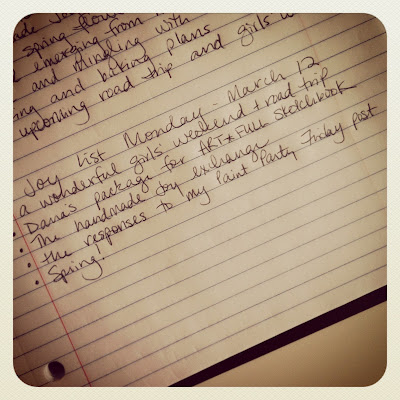 spring flow
emerging from
and mingling with
and biking plans
upcoming road trip and girls w
Joy List Monday - March 12
a wonderful girls' weekend + road trip
Dana's package for ART*FULL Sketchbook
• The handmade Joy exchange
• the responses to my Paint Party Friday post
• Spring!